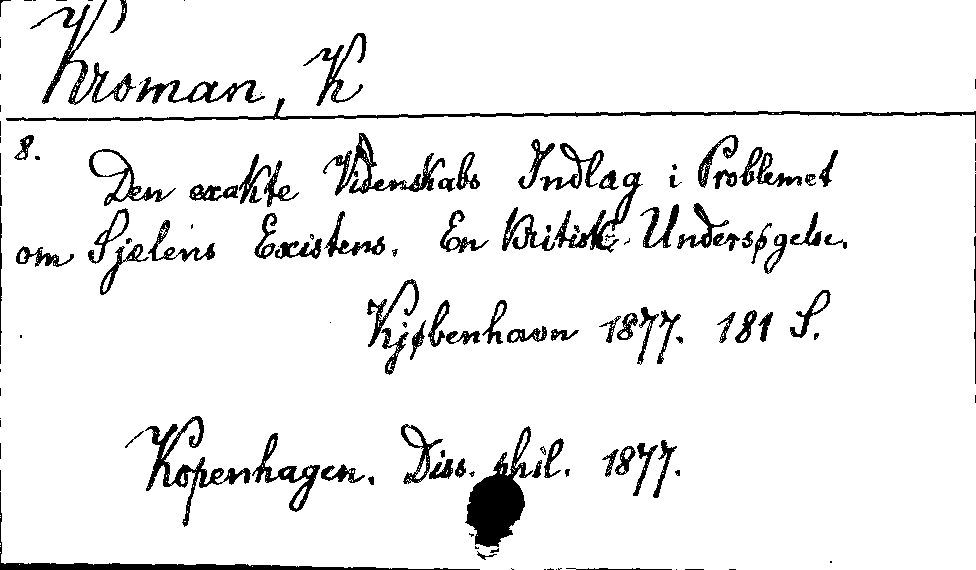 Kroman, K
8.
Den exakte Videnskabs Indlag i Problemet
om Sjælens Existens. En kritisk Undersøgelse.
Kjøbenhavn 1877. 181 S.
Kopenhagen. Diss. phil. 1877.